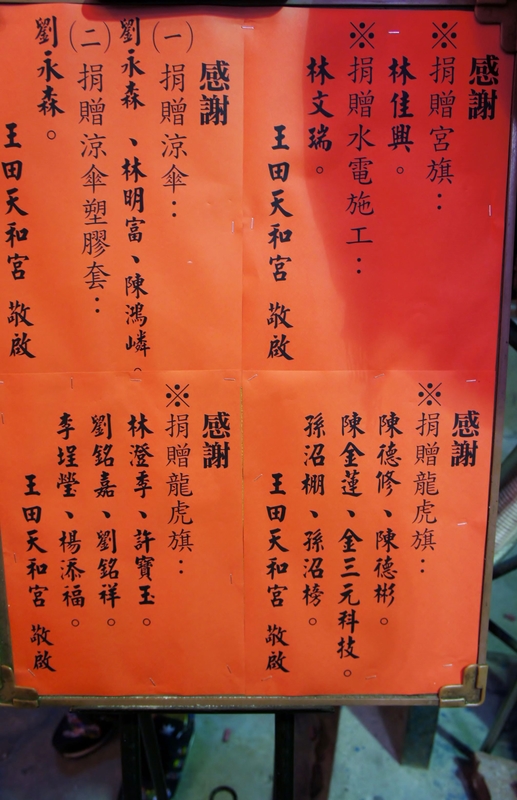 感謝
※捐贈宮旗：
林佳興。
※捐贈水電施工：
林文瑞。
王田天和宮 敬啟
感謝
(一)捐贈涼傘：
劉永森、林明富、陳鴻嶙。
(二)捐贈涼傘塑膠套：
劉永森。
王田天和宮 敬啟
感謝
※捐贈龍虎旗：
陳德修、陳德彬。
陳金蓮、金三元科技。
孫沼棚、孫沼榜。
王田天和宮 敬啟
感謝
※捐贈龍虎旗：
林澄季、許寶玉。
劉銘嘉、劉銘祥。
李埕瑩、楊添福。
王田天和宮 敬啟